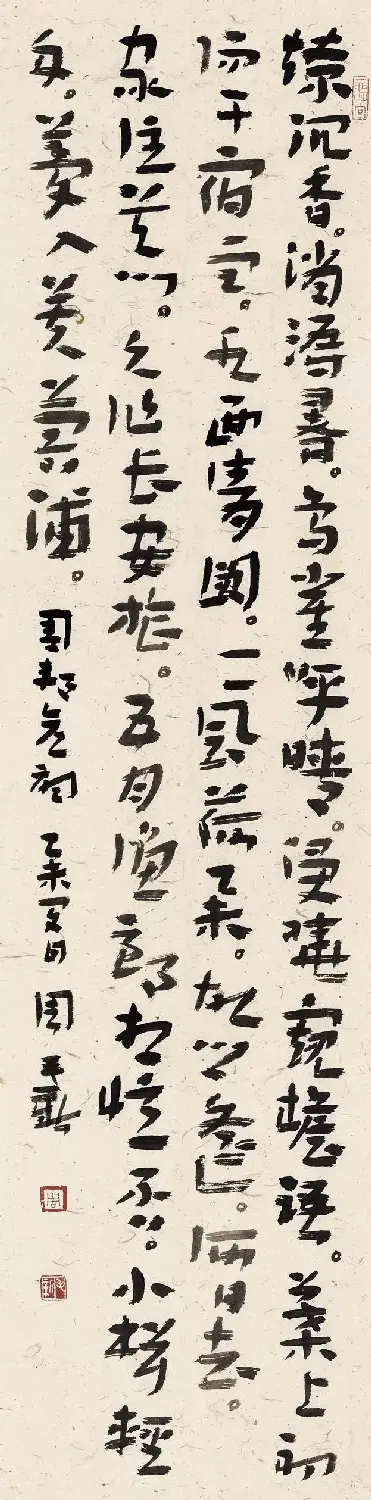 燎沉香。消溽暑。鸟雀呼晴。侵曉窺檐語。葉上初
阳干宿雨。水面清圆。一一風荷举。故乡遥。何日去。
家住吴门。久作长安旅。五月漁郎相憶否。小楫輕
舟。夢入芙蓉浦。周邦彦词 乙未夏日 周